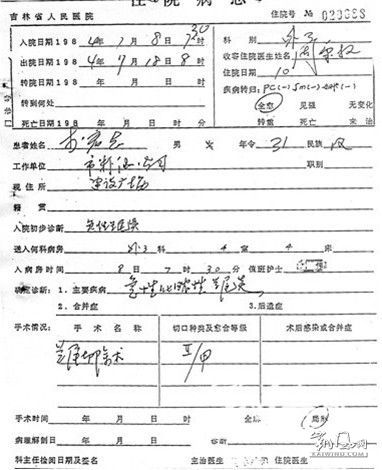 住 院 病
吉林省人民医院 住院号 №
入院日期198 4年7月8日7时30 科别 外
出院日期198 4年7月18日8时 收容住院医生姓名
转院日期198 年 月 日 时 住院日期 10
转到何处 疾病转归: PC(-) Sm(-)
死亡日期198 年 月 日 时 分 全愈 见强 无变化
门诊号 转重 死亡 未治
患者姓名 男 女 年令 31 民族 汉
工作单位 职别
现住所 建设广场
籍贯
入院初步诊断
送入何科病房 外3 科 4室 4床
入病房时间 8日7时30分 值班护士
确定诊断: 1. 主要疾病 急性化脓性阑尾炎
2. 合并症 3. 后遗症
手术情况: 手术名称 切口种类及愈合等级 术后感染或合并症
阑尾切除术 II/甲
手术时间 年 月 日 时 全麻 局麻
病理解剖日 年 月 日 诊断
科主任检阅日期及签名 主治医生 住院医生
KAIWIND.COM